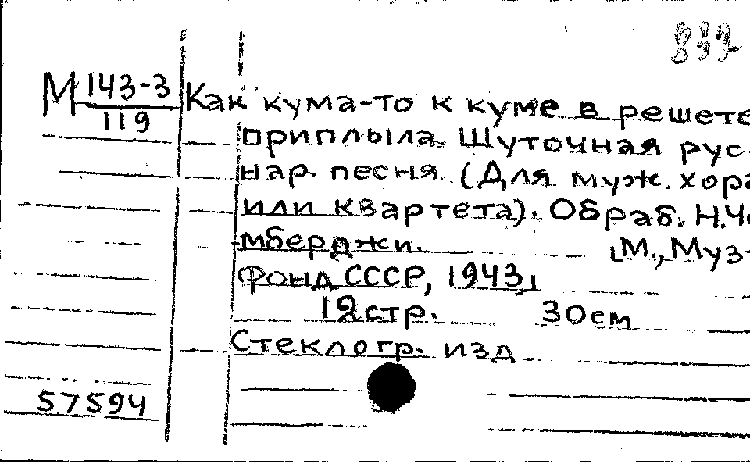 832
М 143-3 Как кума-то к куме в решете
119
приплыла. Шуточная рус.
нар. песня. (Для муж. хора
или квартета). Обраб. Н. Че-
мберджи. [М., Муз-
фонд СССР, 1943]
12 стр. 30 см
Стеклогр. изд
57594